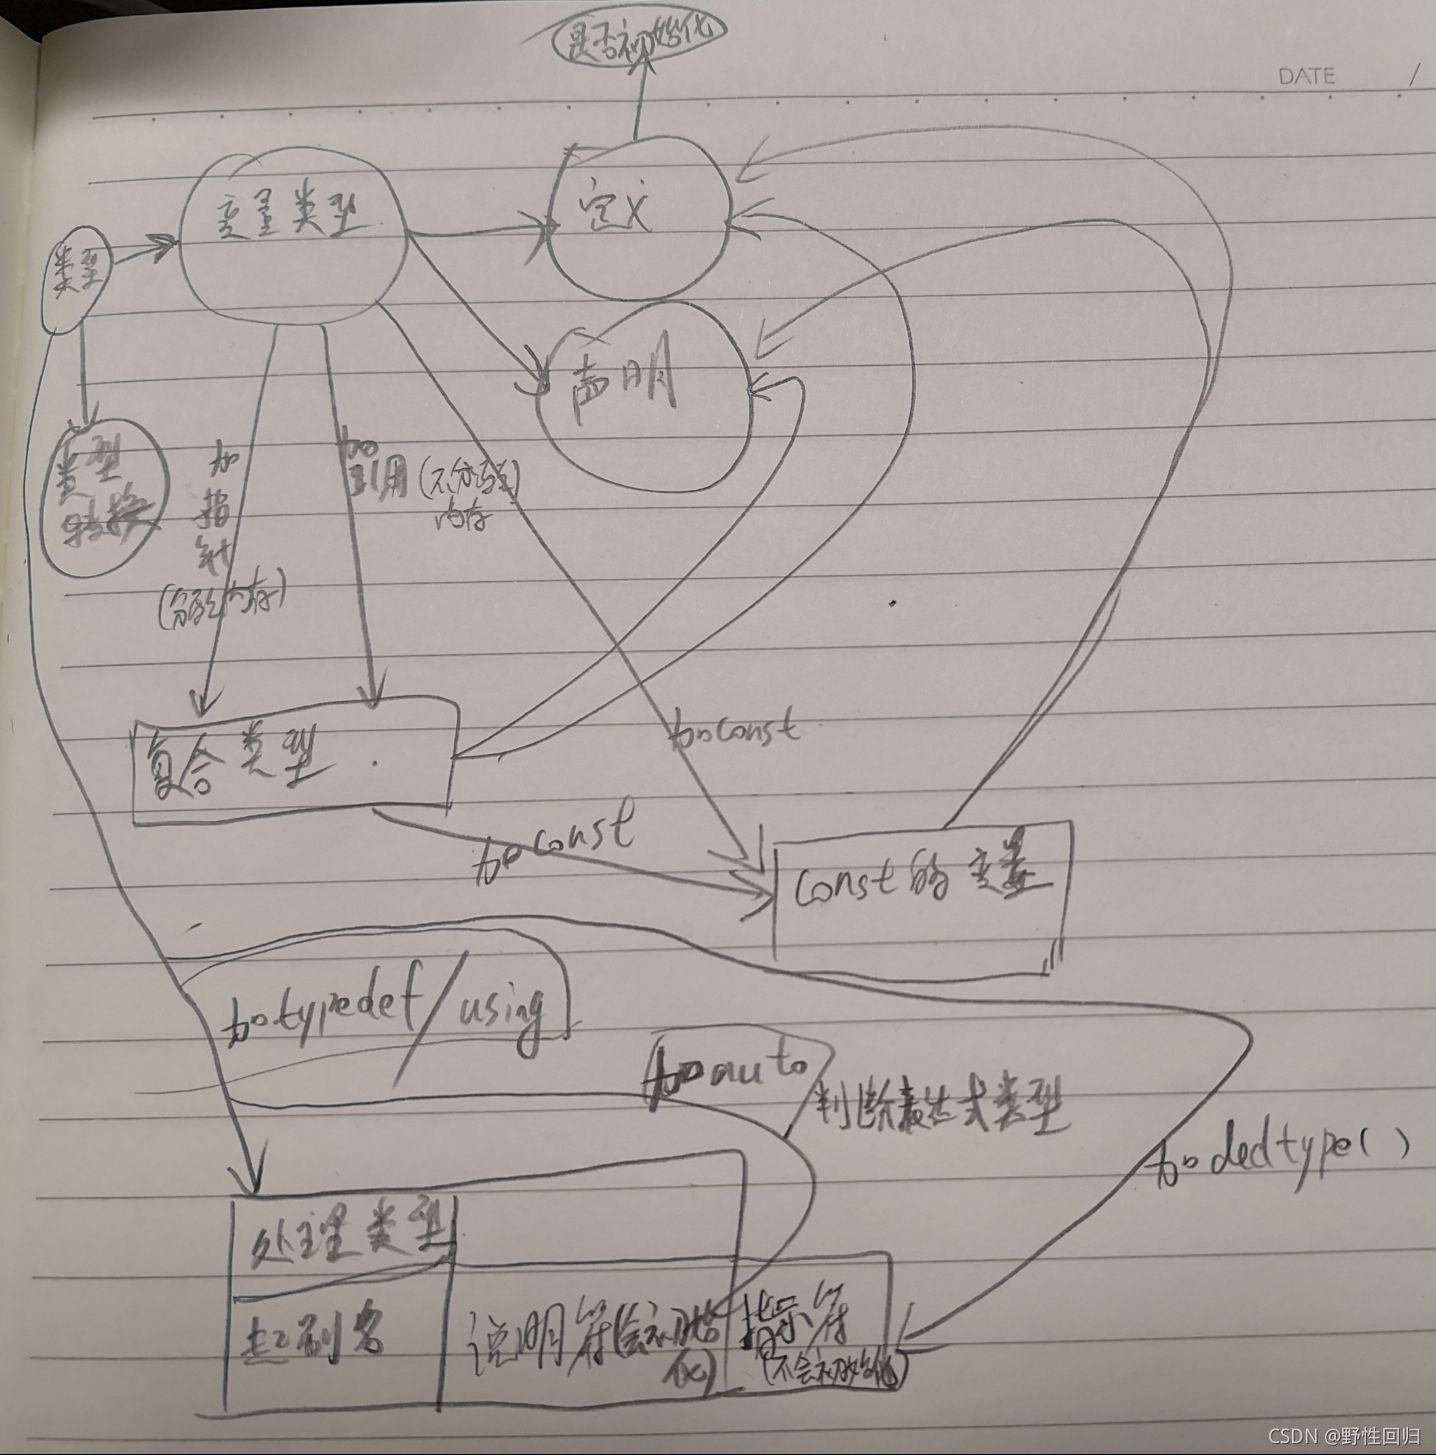 是否初始化
DATE /
变量类型
定义
类型
声明
类型
转换
加
指
针
(分配内存)
加
引用(不分配)
内存
复合类型
加const
加const
const的变量
加typedef/using
加auto
判断表达式类型
加dedtype()
处理类型
起别名
说明符(会初始
化)
指示符
(不会初始化)
CSDN @野性回归